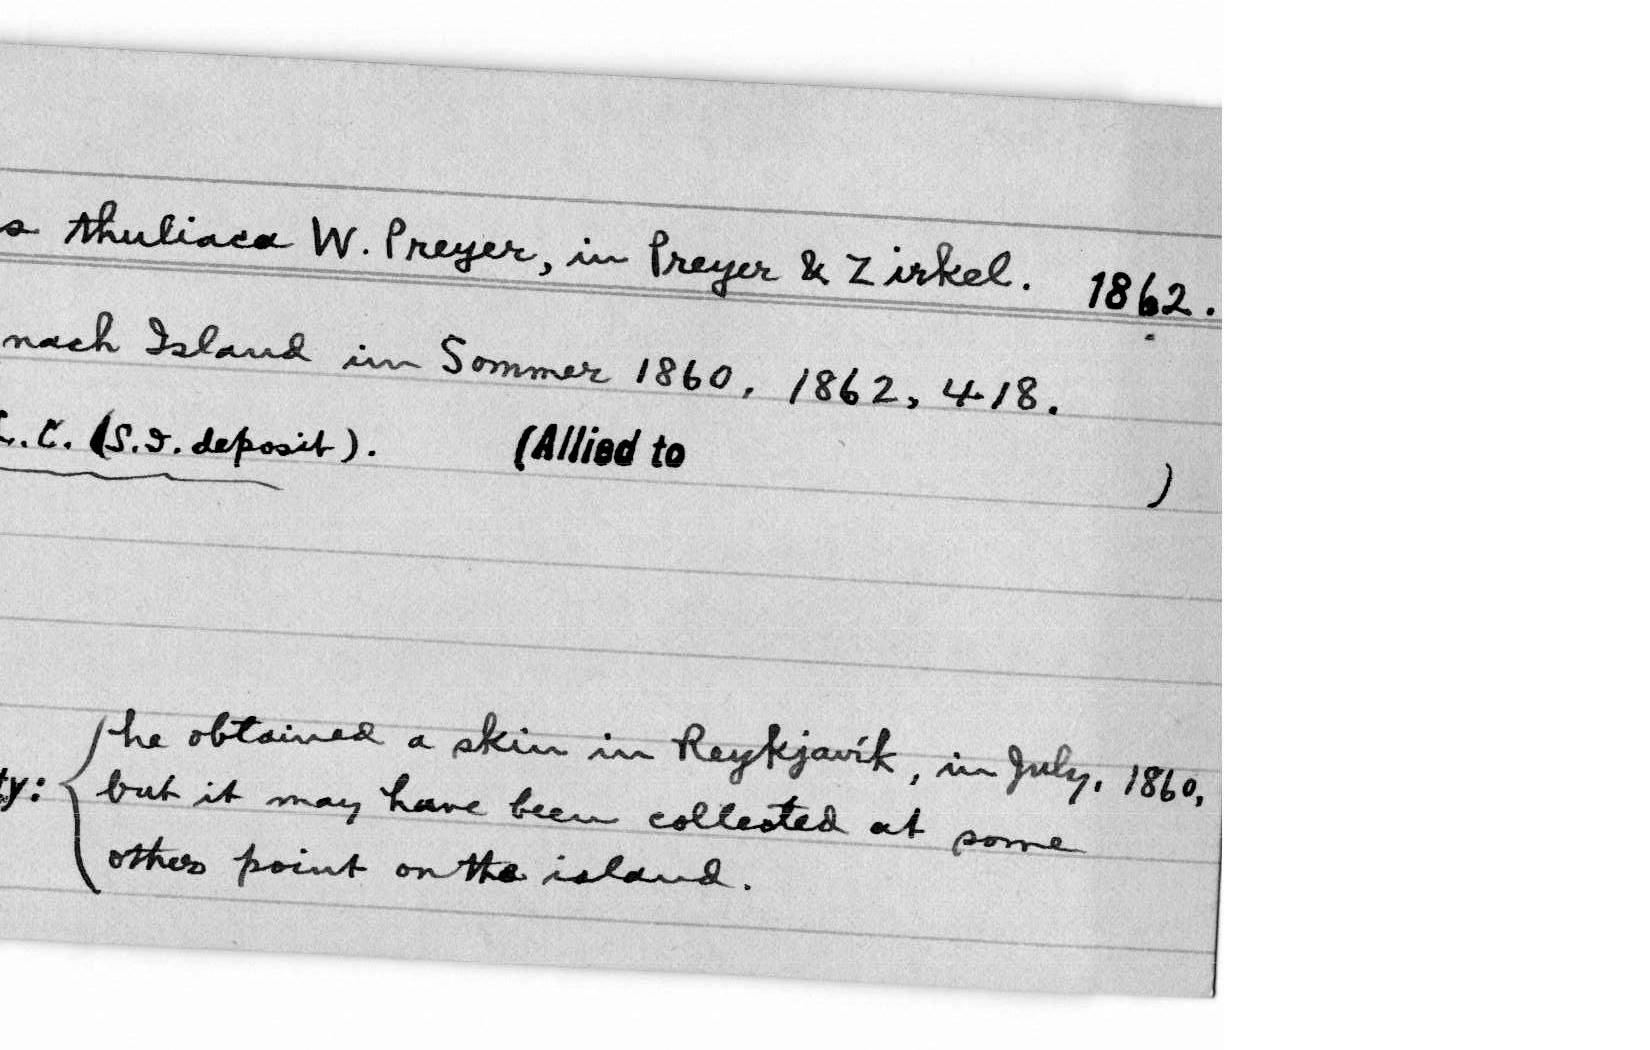 s thuliaca W. Preyer, in Preyer & Zirkel. 1862.
nach Island im Sommer 1860, 1862, 418.
L.C. (S.I. deposit). (Allied to )
ty: he obtained a skin in Reykjavík, in July, 1860,
but it may have been collected at some
other point on the island.